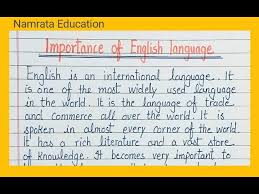 Namrata Education
Importance of English language.
English is an international language. It
is one of the most widely used language
in the world. It is the language of trade
and commerce all over the world. It is
spoken in almost every corner of the world.
It has a rich literature and a vast store
of knowledge. It becomes very important to